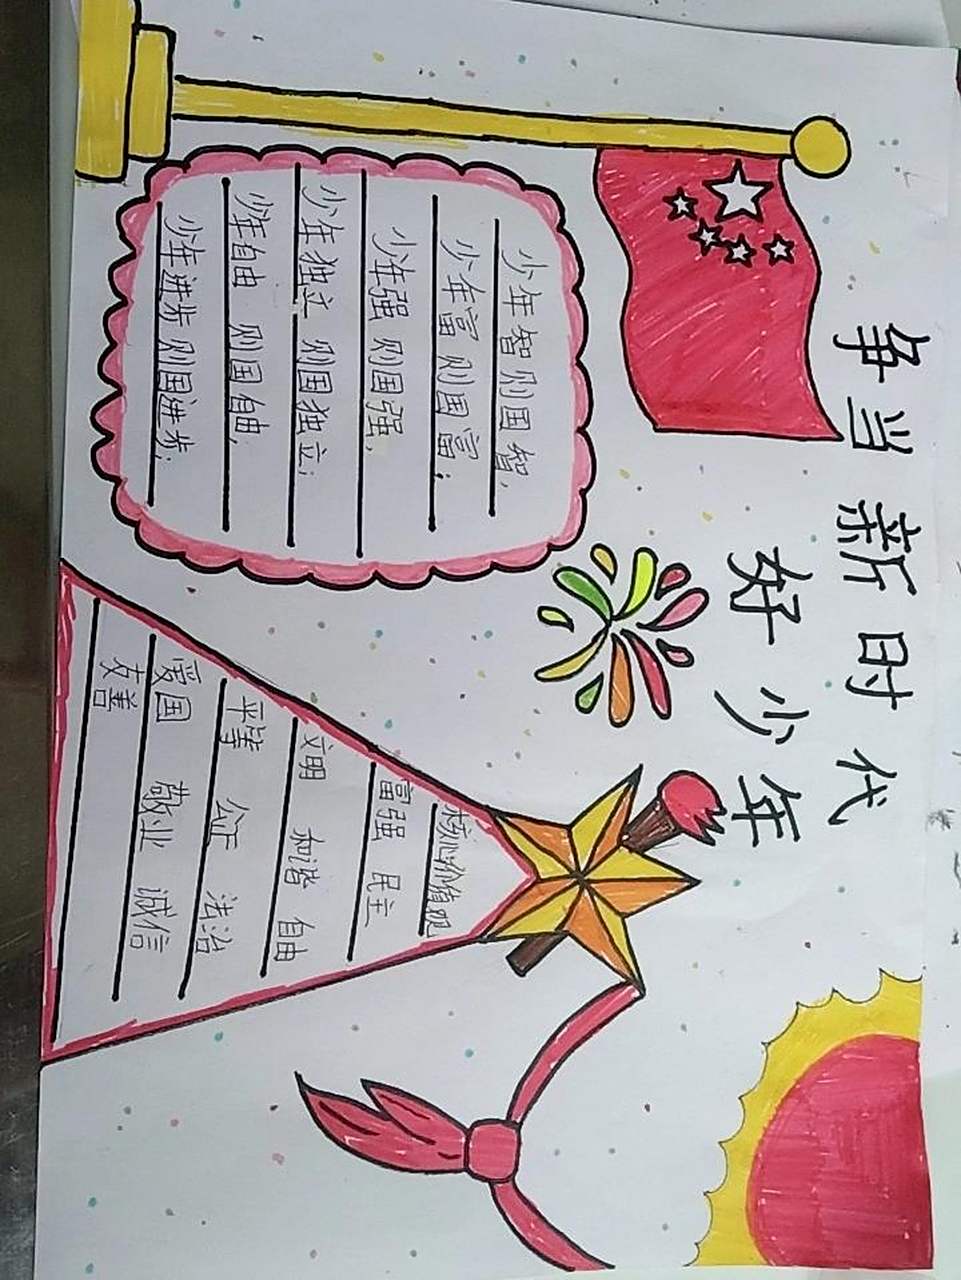 争当新时代
好少年
少年智则国智,
少年富则国富;
少年强则国强,
少年独立则国独立;
少年自由则国自由,
少年进步则国进步;
核心价值观
富强 民主
文明 和谐 自由
平等 公正 法治
爱国 敬业 诚信
友善